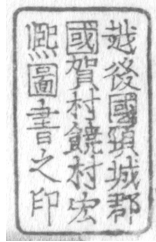 越後國頚城郡
國賀村饒村宏
熈圖書之印